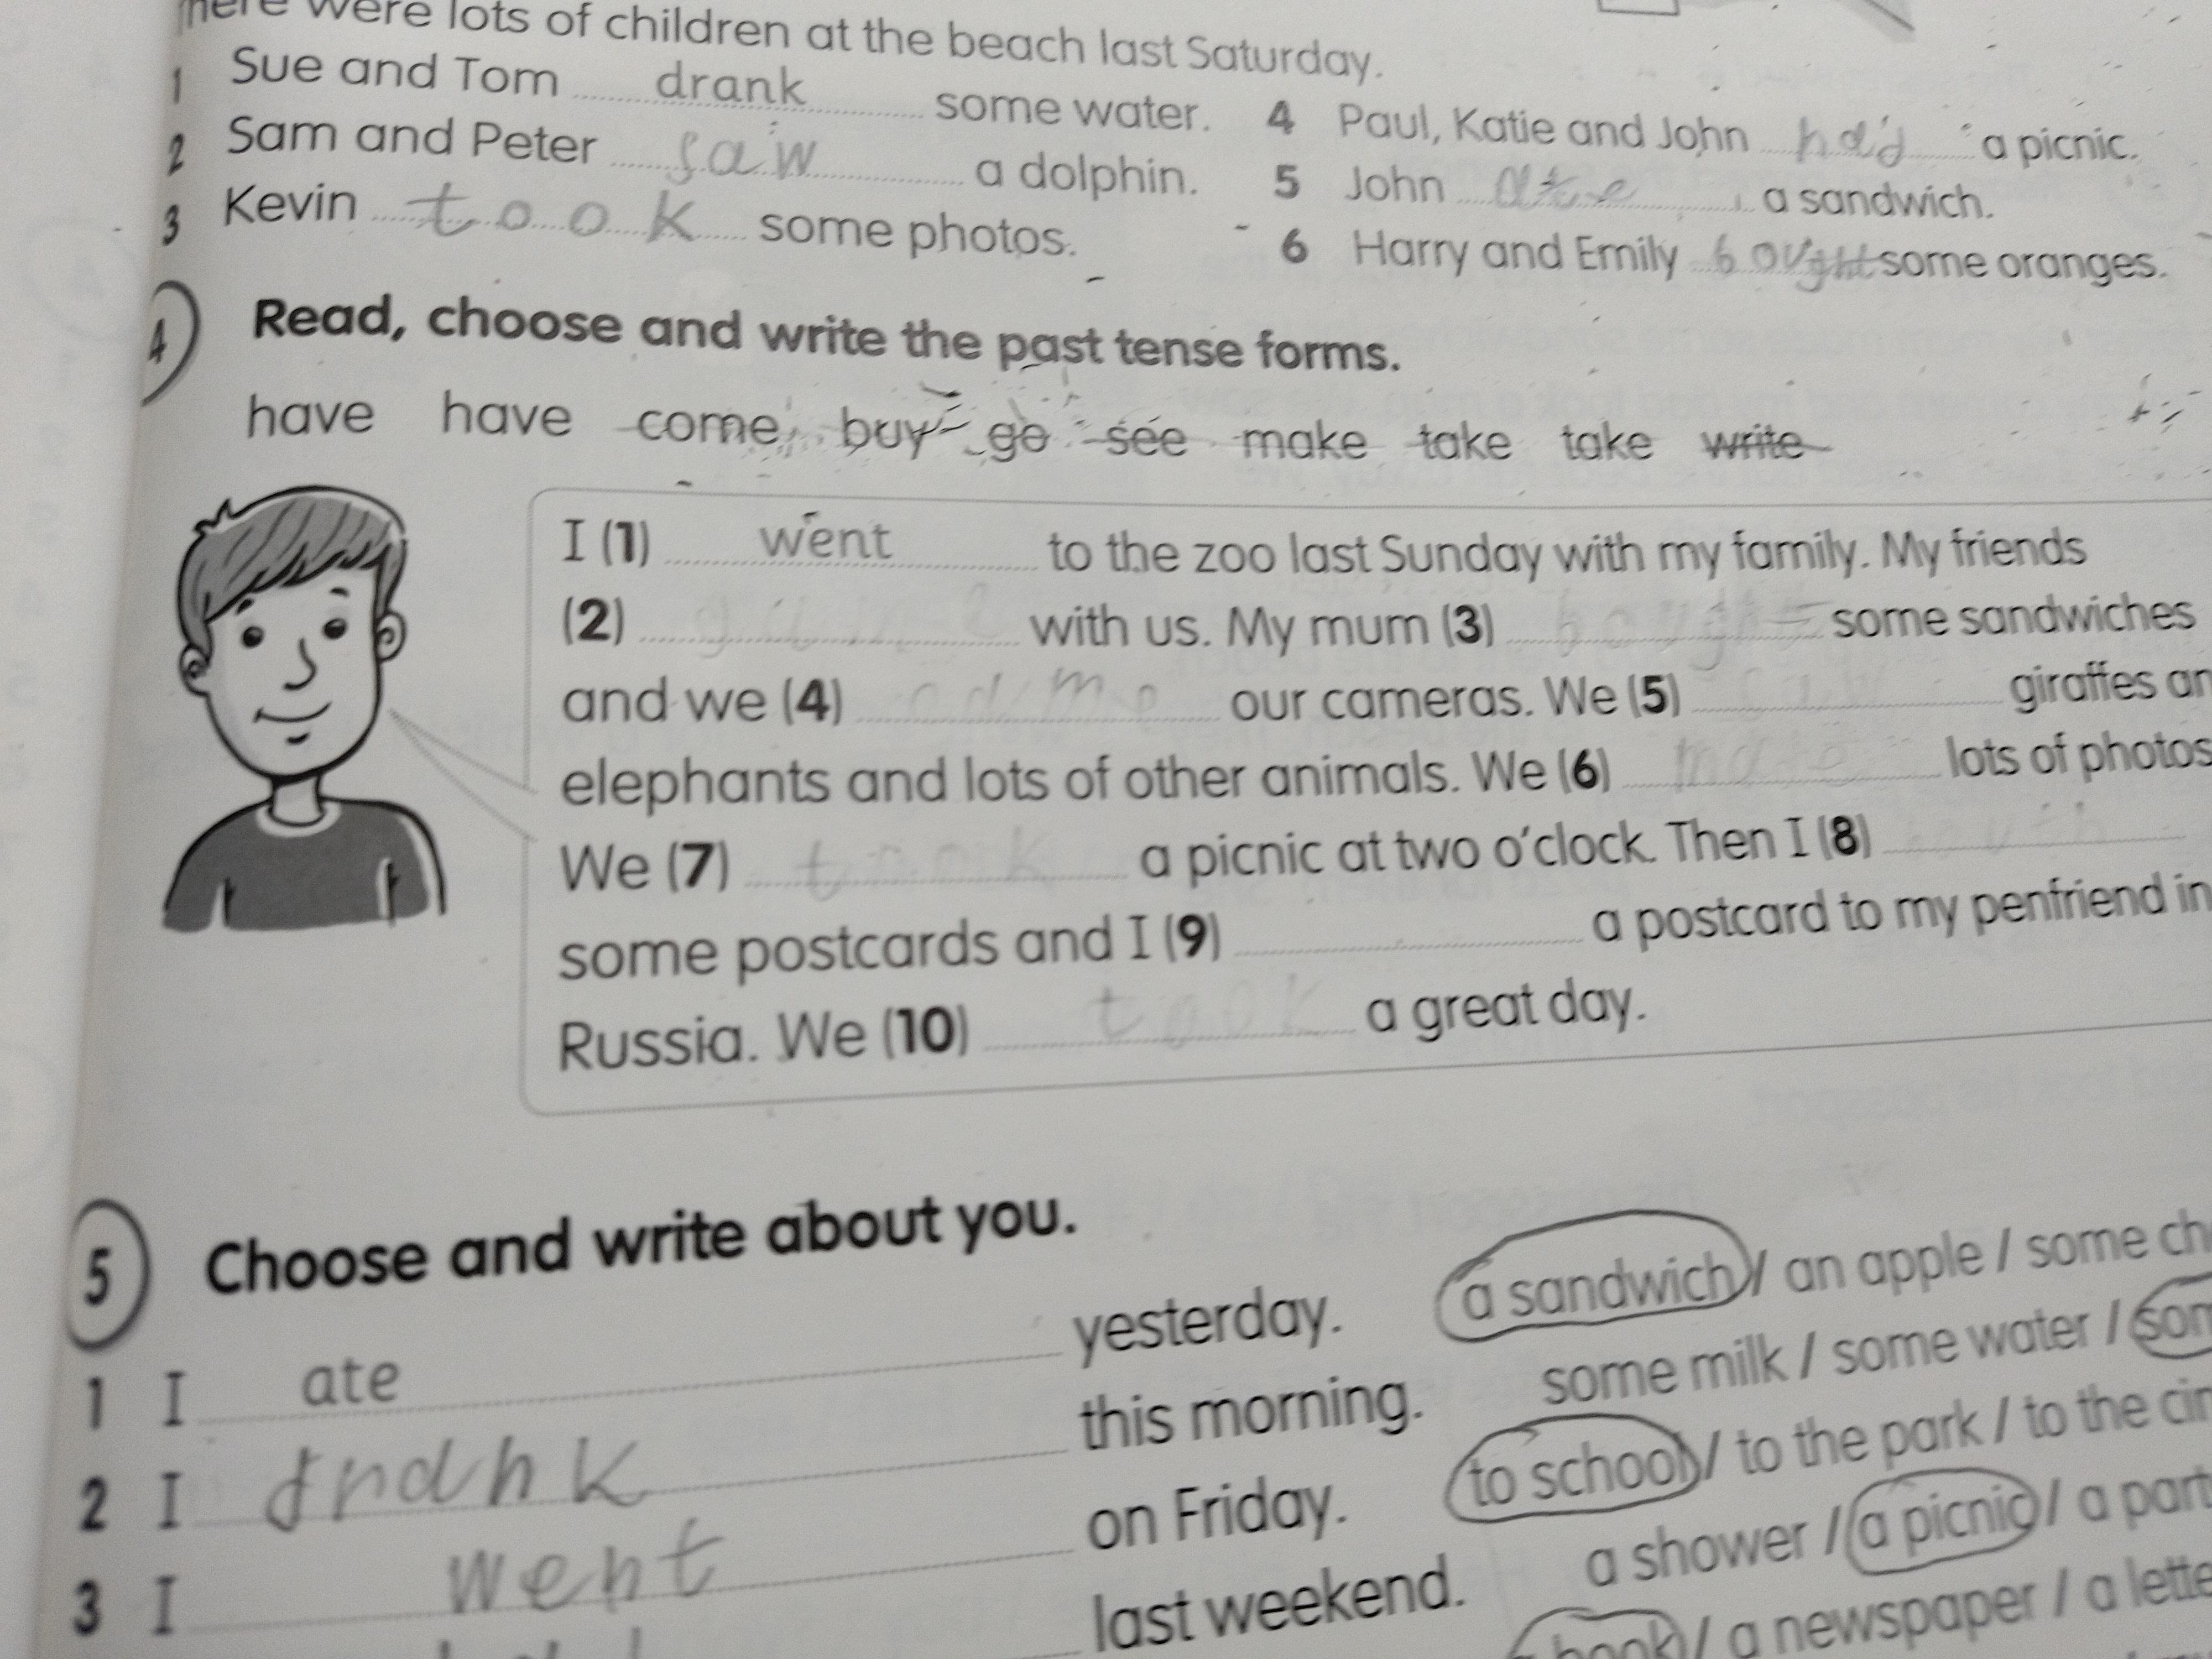 were lots of children at the beach last Saturday.
1 Sue and Tom drank some water.
2 Sam and Peter saw a dolphin.
3 Kevin took some photos.
4 Paul, Katie and John had a picnic.
5 John ate a sandwich.
6 Harry and Emily bought some oranges.
4 Read, choose and write the past tense forms.
have have come buy go see make take take write
I (1) went to the zoo last Sunday with my family. My friends
(2) with us. My mum (3) bought some sandwiches
and we (4) our cameras. We (5) giraffes
elephants and lots of other animals. We (6) lots of photos
We (7) took a picnic at two o'clock. Then I (8)
some postcards and I (9) a postcard to my penfriend in
Russia. We (10) took a great day.
5 Choose and write about you.
1 I ate yesterday. a sandwich / an apple / some
2 I drank this morning. some milk / some water /
3 I went on Friday. to school / to the park / to the
last weekend. a shower / a picnic / a
book / a newspaper / a